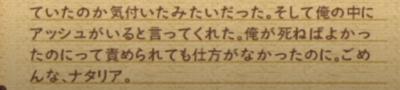 ていたのか気付いたみたいだった。そして俺の中に
アッシュがいると言ってくれた。俺が死ねばよかっ
たのにって責められても仕方がなかったのに。ごめ
んな、ナタリア。